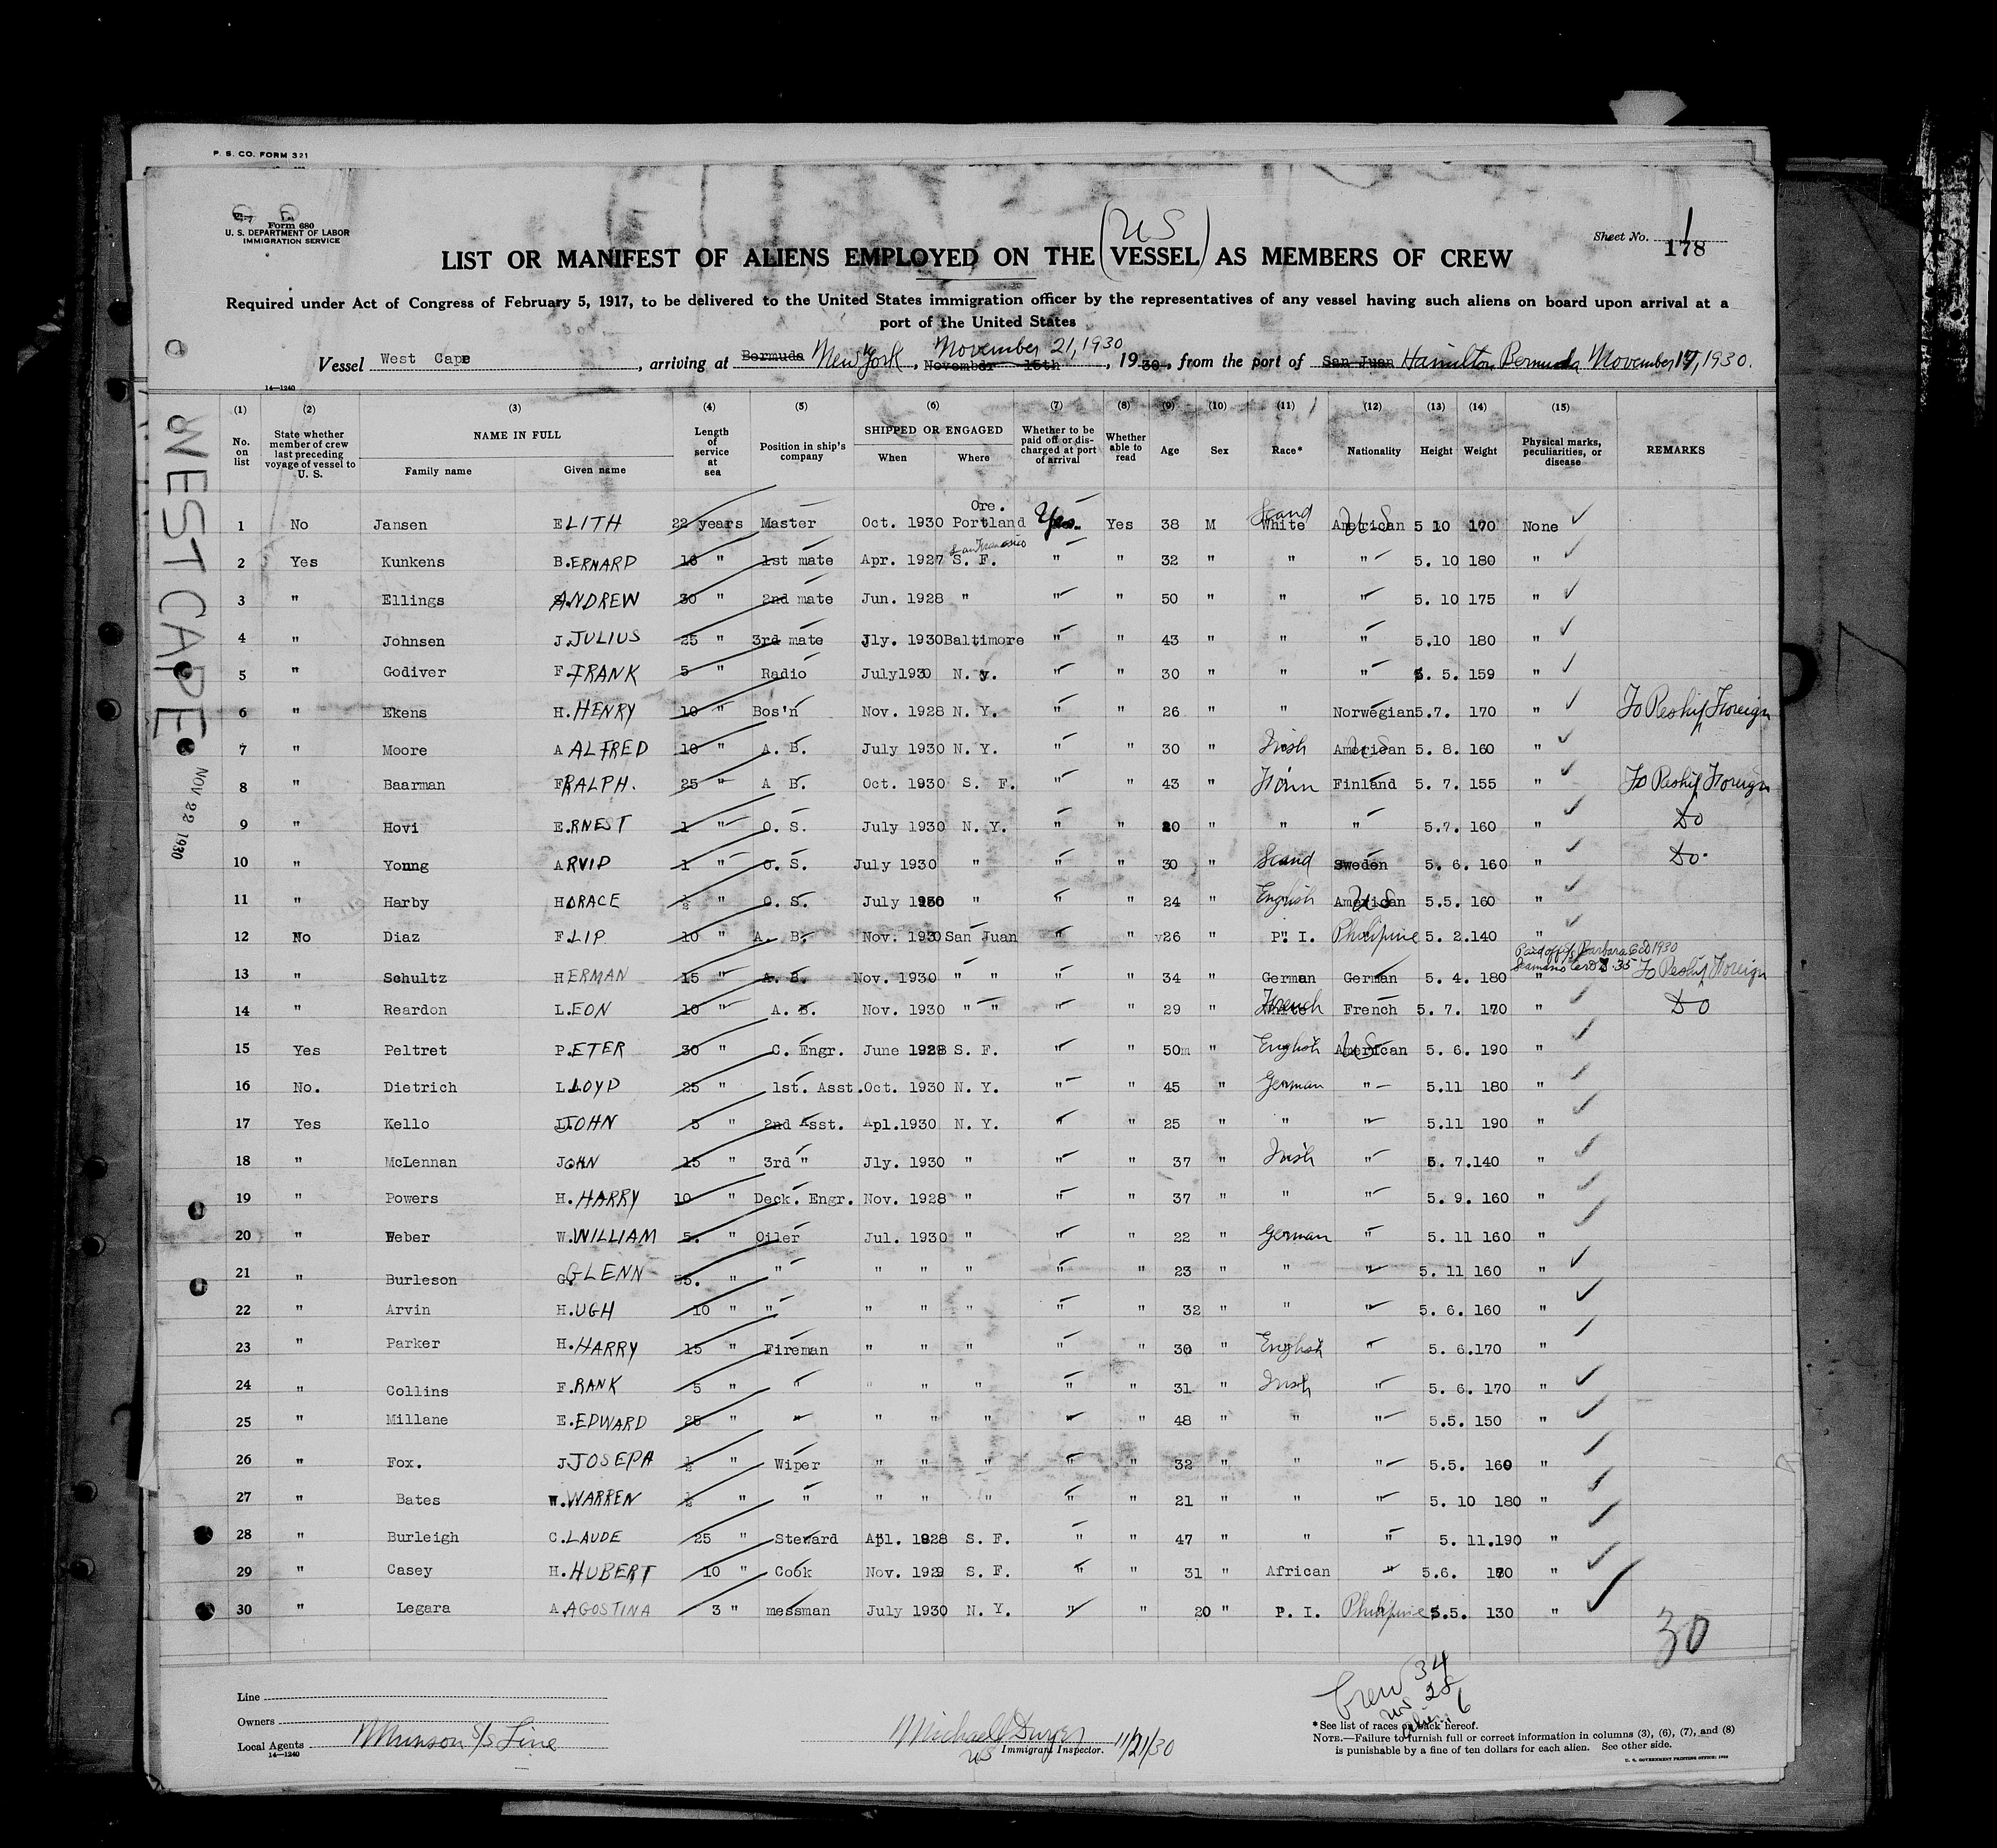 P. S. CO. FORM 321
Form 680
U. S. DEPARTMENT OF LABOR
IMMIGRATION SERVICE
Sheet No. 1
178
(US)
LIST OR MANIFEST OF ALIENS EMPLOYED ON THE VESSEL AS MEMBERS OF CREW
Required under Act of Congress of February 5, 1917, to be delivered to the United States immigration officer by the representatives of any vessel having such aliens on board upon arrival at a
port of the United States
Vessel West Cape, arriving at Bermuda New York, November 15th November 21, 1930, 1930, from the port of San Juan Hamilton Bermuda November 17, 1930.
14—1240
(1) (2) (3) (4) (5) (6) (7) (8) (9) (10) (11) (12) (13) (14) (15)
No. on list State whether member of crew last preceding voyage of vessel to U. S. NAME IN FULL Family name Given name Length of service at sea Position in ship's company SHIPPED OR ENGAGED When Where Whether to be paid off or discharged at port of arrival Whether able to read Age Sex Race* Nationality Height Weight Physical marks, peculiarities, or disease REMARKS
WEST CAPE
NOV 22 1930
1 No Jansen ELITH 22 years Master Oct. 1930 Ore. Portland Yes Yes 38 M White Scand American US 5 10 170 None
2 Yes Kunkens B.ERNARD 16 " 1st mate Apr. 1927 S. F. San Francisco " " 32 " " " 5. 10 180 "
3 " Ellings ANDREW 30 " 2nd mate Jun. 1928 " " " 50 " " " 5. 10 175 "
4 " Johnsen J.JULIUS 25 " 3rd mate Jly. 1930 Baltimore " " 43 " " " 5.10 180 "
5 " Godiver F.FRANK 5 " Radio July1930 N. Y. " " 30 " " " 5. 5. 159 "
6 " Ekens H.HENRY 10 " Bos'n Nov. 1928 N. Y. " " 26 " " Norwegian 5.7. 170 " To Reship Foreign
7 " Moore A ALFRED 10 " A. B. July 1930 N. Y. " " 30 " Irish American US 5. 8. 160 "
8 " Baarman F RALPH. 25 " A B. Oct. 1930 S. F. " " 43 " Finn Finland 5. 7. 155 " To Reship Foreign
9 " Hovi E.RNEST 1 " O. S. July 1930 N. Y. " " 20 " " " 5.7. 160 " Do
10 " Young ARVID 1 " O. S. July 1930 " " " 30 " Scand Sweden 5. 6. 160 " Do.
11 " Harby HORACE ½ " O. S. July 1930 " " " 24 " English American US 5.5. 160 "
12 No Diaz F.LIP 10 " A. B. Nov. 1930 San Juan " " 26 " P. I. Philipine 5. 2. 140 "
13 " Schultz HERMAN 15 " A. B. Nov. 1930 " " " " 34 " German German 5. 4. 180 " To Reship Foreign
14 " Reardon L.EON 10 " A. B. Nov. 1930 " " " " 29 " French French 5. 7. 170 " Do
15 Yes Peltret P.ETER 30 " C. Engr. June 1928 S. F. " " 50 " English American US 5. 6. 190 "
16 No. Dietrich LLOYD 25 " 1st. Asst. Oct. 1930 N. Y. " " 45 " German " 5.11 180 "
17 Yes Kello JOHN 5 " 2nd Asst. Apl.1930 N. Y. " " 25 " " " 5.11 190 "
18 " McLennan JOHN 15 " 3rd " Jly. 1930 " " " 37 " Irish " 5. 7. 140 "
19 " Powers H.HARRY 10 " Deck. Engr. Nov. 1928 " " " 37 " " " 5. 9. 160 "
20 " Weber W.WILLIAM 5. " Oiler Jul. 1930 " " " 22 " German " 5. 11 160 "
21 " Burleson G.GLENN " " " " " " " 23 " " " 5. 11 160 "
22 " Arvin H.UGH 10 " " " " " " " 32 " " " 5. 6. 160 "
23 " Parker H.HARRY 15 " Fireman " " " " " 30 " English " 5. 6. 170 "
24 " Collins F.RANK 5 " " " " " " " 31 " Irish " 5. 6. 170 "
25 " Millane E.EDWARD 25 " " " " " " " 48 " " " 5.5. 150 "
26 " Fox. J.JOSEPH ½ " Wiper " " " " " 32 " " " 5.5. 160 "
27 " Bates W.WARREN ½ " " " " " " " 21 " " " 5. 10 180 "
28 " Burleigh C.LAUDE 25 " Steward Apl. 1928 S. F. " " 47 " " " 5. 11. 190 "
29 " Casey H.HUBERT 10 " Cook Nov. 1929 S. F. " " 31 " African " 5.6. 170 "
30 " Legara A.AGOSTINA 3 " messman July 1930 N. Y. " " 20 " P. I. Philipine 5.5. 130 "
30
Crew 34
US 28
Alien 6
Line
Owners
Local Agents Munson S/S Line
14—1240
Michael Dwyer 11/21/30
US Immigrant Inspector.
*See list of races on back hereof.
NOTE.—Failure to furnish full or correct information in columns (3), (6), (7), and (8)
is punishable by a fine of ten dollars for each alien. See other side.
U. S. GOVERNMENT PRINTING OFFICE: 1930